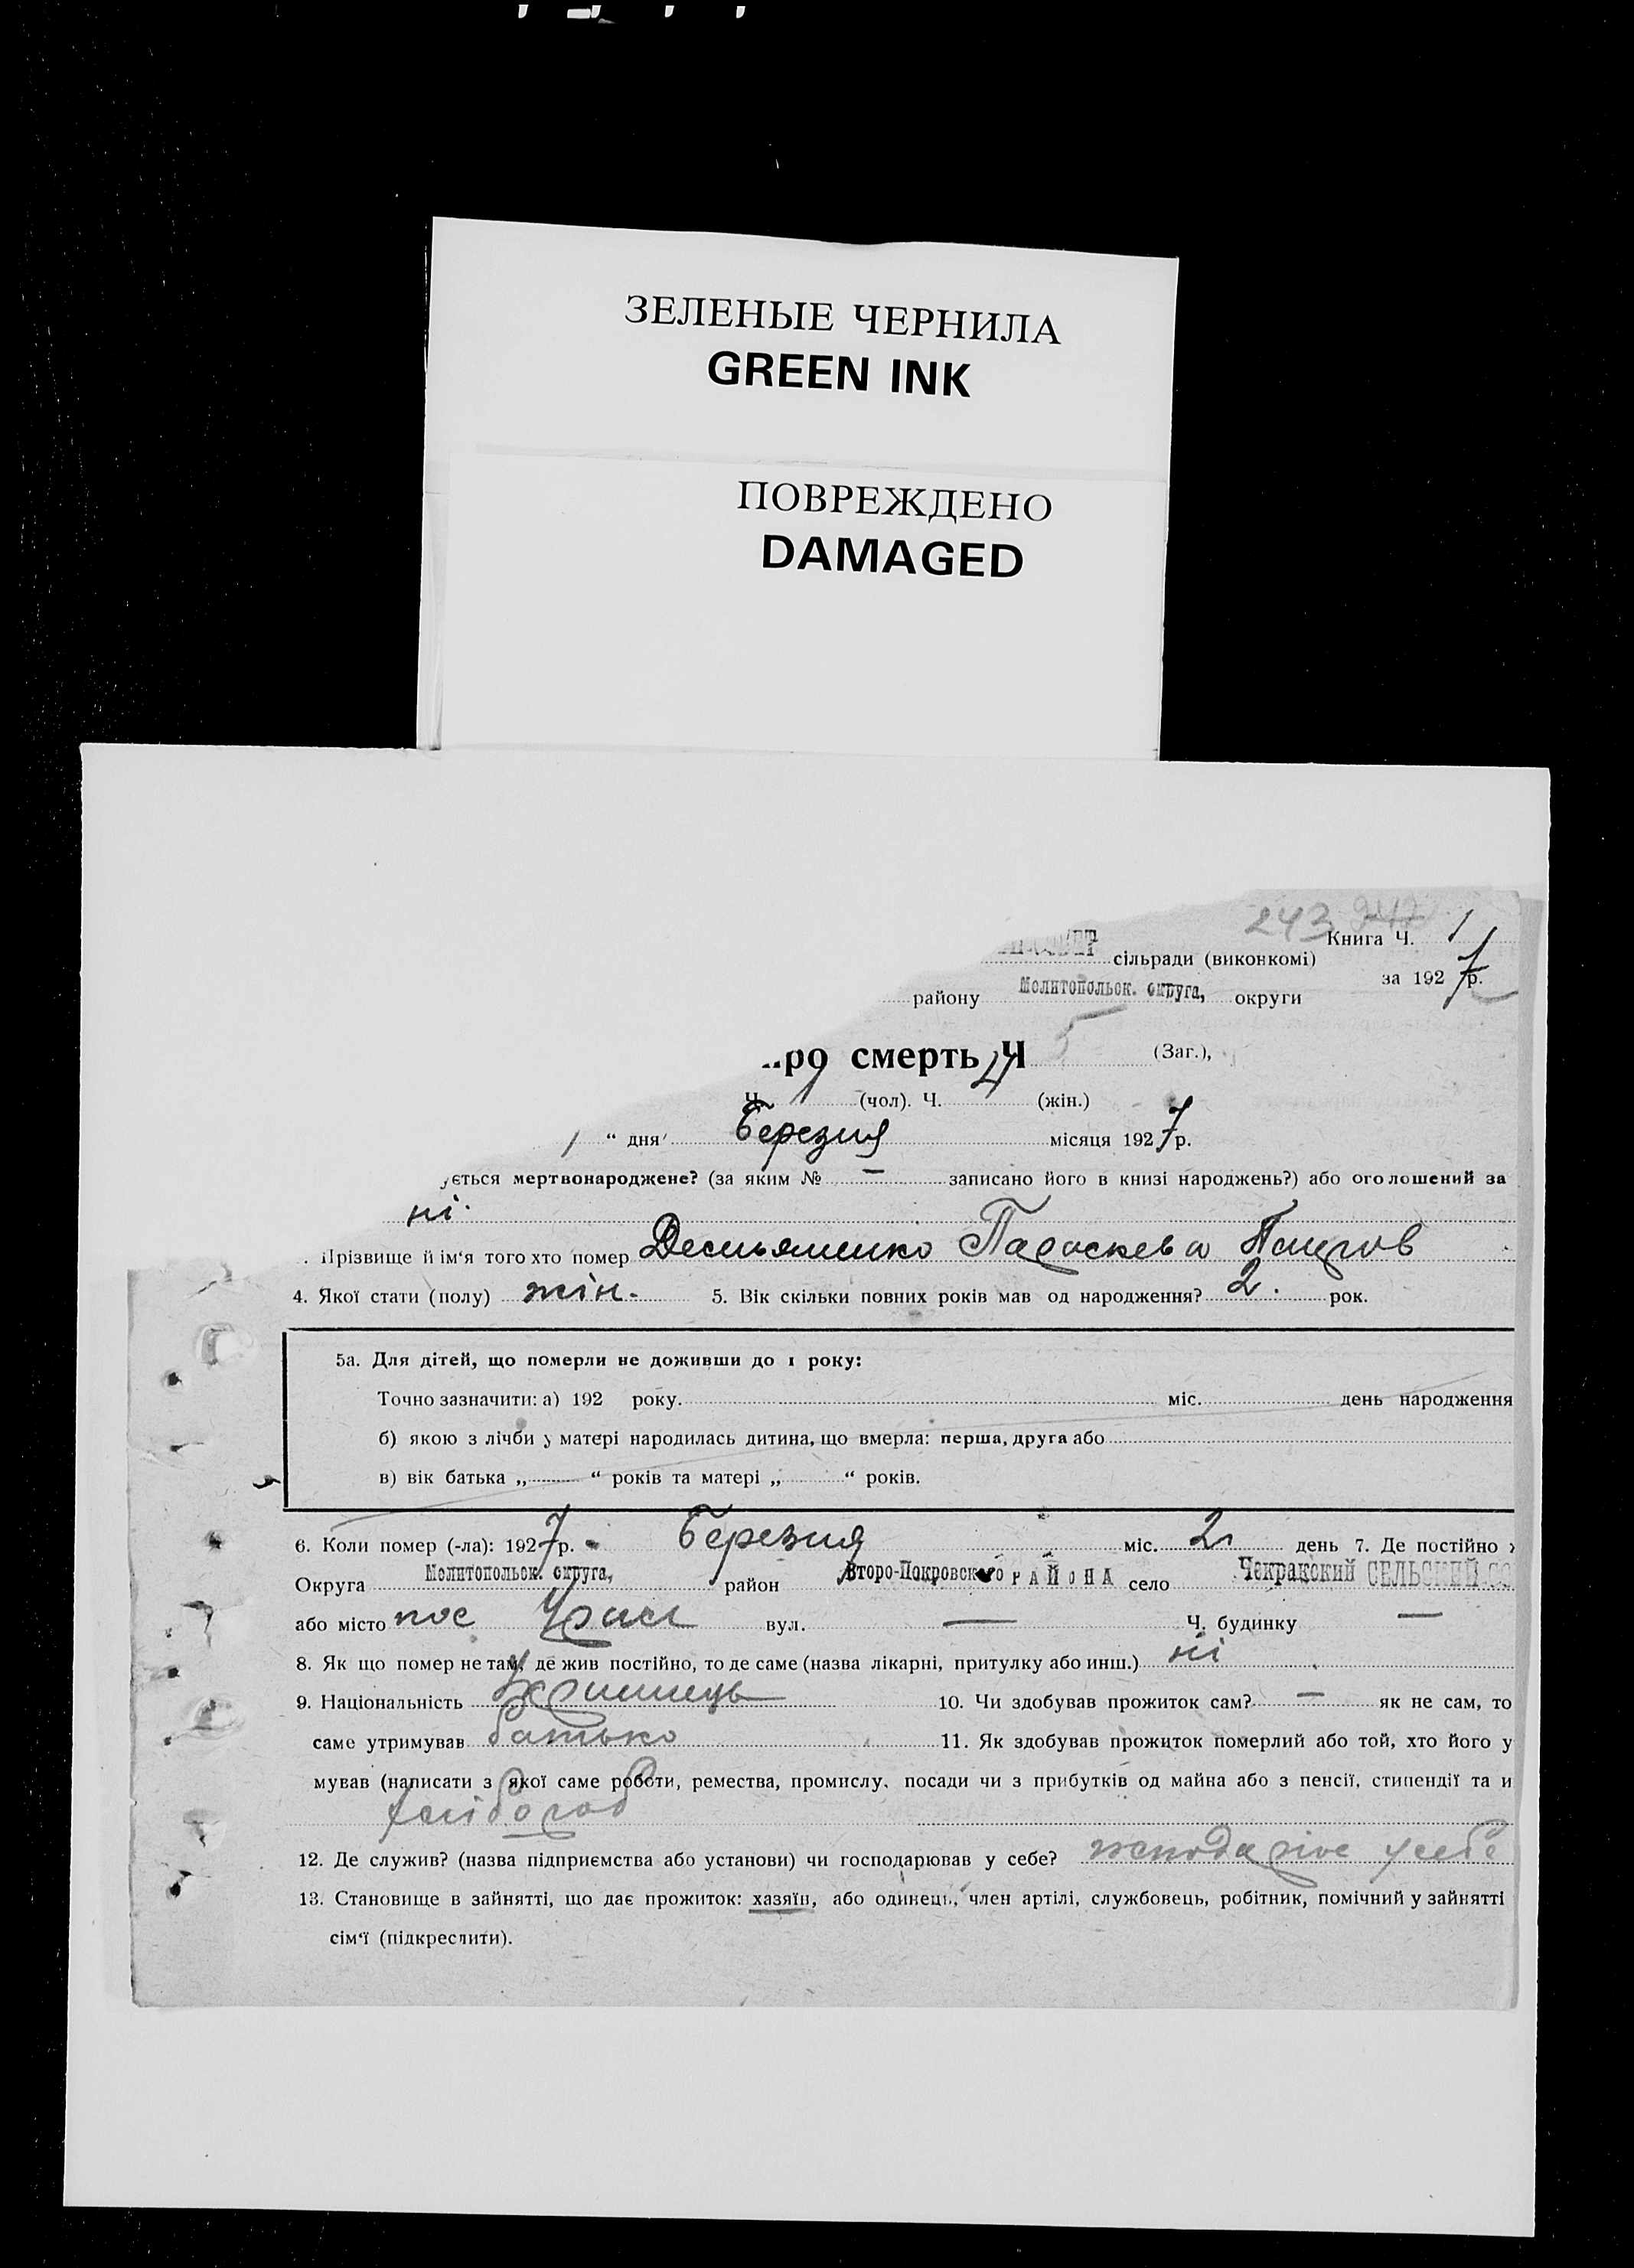 ЗЕЛЕНЫЕ ЧЕРНИЛА
GREEN INK
ПОВРЕЖДЕНО
DAMAGED
243
Книга Ч. 1
сільради (виконкомі)
за 1927 р.
району Мелитопольск. округа, округи
про смерть Ч 5 (Заг.),
Ч. 1 (чол). Ч. 4 (жін.)
“ дня Березня місяця 1927 р.
ується мертвонароджене? (за яким № — записано його в книзі народжень?) або оголошений за
ні.
. Прізвище й ім‘я того хто помер Параскева
4. Якої стати (полу) жін. 5. Вік скільки повних років мав од народження? 2. рок.
5а. Для дітей, що померли не доживши до 1 року:
Точно зазначити: а) 192 року. міс. день народження
б) якою з лічби у матері народилась дитина, що вмерла: перша, друга або
в) вік батька „ “ років та матері „ “ років.
6. Коли помер (-ла): 1927 р. Березня міс. день 7. Де постійно
Округа Мелитопольск. округа, район Второ-Покровского РАЙОНА село Чекракский СЕЛЬСКИЙ СО
або місто пос вул. — Ч. будинку —
8. Як що помер не там, де жив постійно, то де саме (назва лікарні, притулку або инш.) ні
9. Національність 10. Чи здобував прожиток сам? — як не сам, то
саме утримував батько 11. Як здобував прожиток померлий або той, хто його у
мував (написати з якої саме роботи, ремества, промислу, посади чи з прибутків од майна або з пенсії, стипендії та и
хлібороб
12. Де служив? (назва підприємства або установи) чи господарював у себе? у себе
13. Становище в зайнятті, що дає прожиток: хазяїн, або одинець, член артілі, службовець, робітник, помічний у зайнятті
сім‘ї (підкреслити).